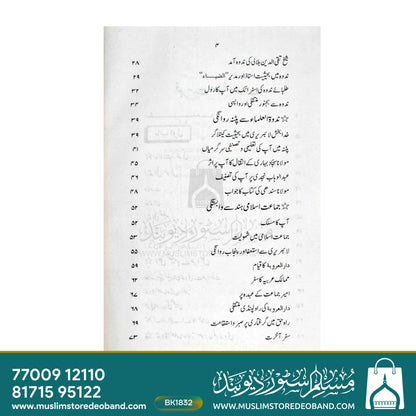 ۴
شیخ تقی الدین ہلالی کی ندوہ آمد ۲۸
ندوہ میں بحیثیت استاذ اور مدیر "الضیاء" ۲۹
طلبائے ندوہ کی اسٹرائک میں آپ کا رول ۳۲
ندوہ سے بجنور منتقلی اور واپسی ۳۴
ندوۃ العلماء سے پٹنہ روانگی ۳۹
خدا بخش لائبریری میں بحیثیت کیٹلاگر ۳۹
پٹنہ میں آپ کی تعلیمی و تصنیفی سرگرمیاں ۴۱
مولانا سجاد بہاری کے انتقال کا آپ پر اثر ۴۵
عبدالوہاب نجدی پر آپ کی تصنیف ۴۶
مولانا سندھی کی کتاب کا جواب ۴۸
جماعت اسلامی ہند سے وابستگی ۵۲
آپ کا مسلک ۵۲
جماعت اسلامی میں شمولیت ۵۳
لائبریری سے استعفا اور پنجاب روانگی ۵۵
دارالعروبۃ کا قیام ۵۹
ممالک عربیہ کا سفر ۶۲
امیر جماعت کے عہدہ پر ۶۷
دارالعروبۃ کی راولپنڈی منتقلی ۶۸
راہ حق میں گرفتاری پر صبر و استقامت ۶۹
سفر آخرت ۷۳
77009 12110
81715 95122
BK1832
مسلم سٹور دیوبند
www.muslimstoredeoband.com
WWW.MUSLIMSTOREDEOBAND.COM